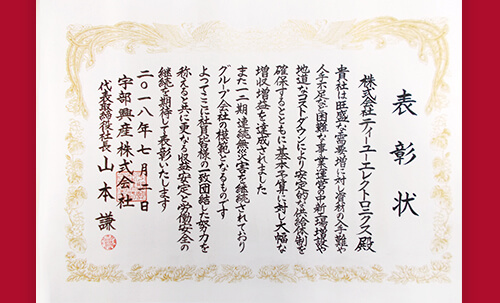 表彰状
株式会社ティーユーエレクトロニクス殿
貴社は旺盛な需要増に対し資材の入手難や
人手不足など困難な事業運営の中新工場増設や
地道なコストダウンにより安定的な供給体制を
確保するとともに基本予算に対し大幅な
増収増益を達成されました
また二二期連続無災害を継続されており
グループ会社の模範となるものです
よってここに社員皆様の一致団結した努力を
称えると共に更なる収益安定と労働安全の
継続を期待して表彰いたします
二〇一八年七月二日
宇部興産株式会社
代表取締役社長 山本謙